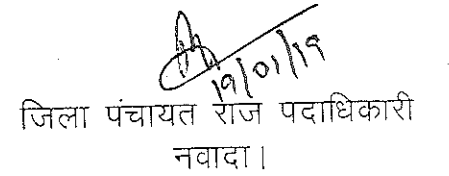 19/01/19
जिला पंचायत राज पदाधिकारी
नवादा।